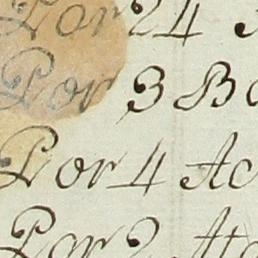 Por 24
Por 3 Bo
Por 4 Ac
Por 2